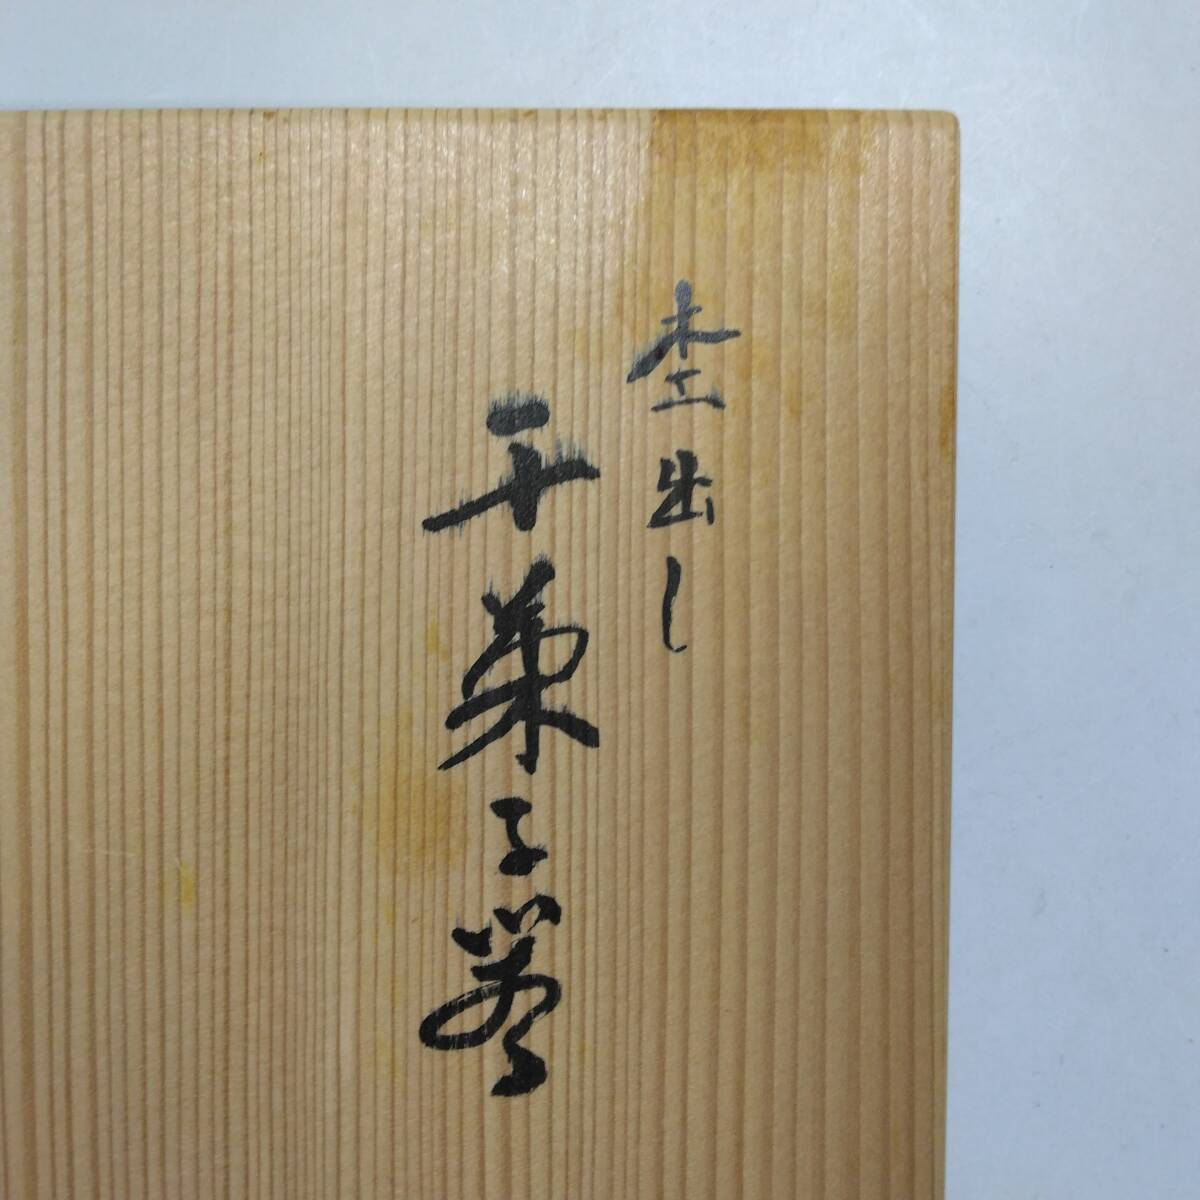 杢出し
干菓子器